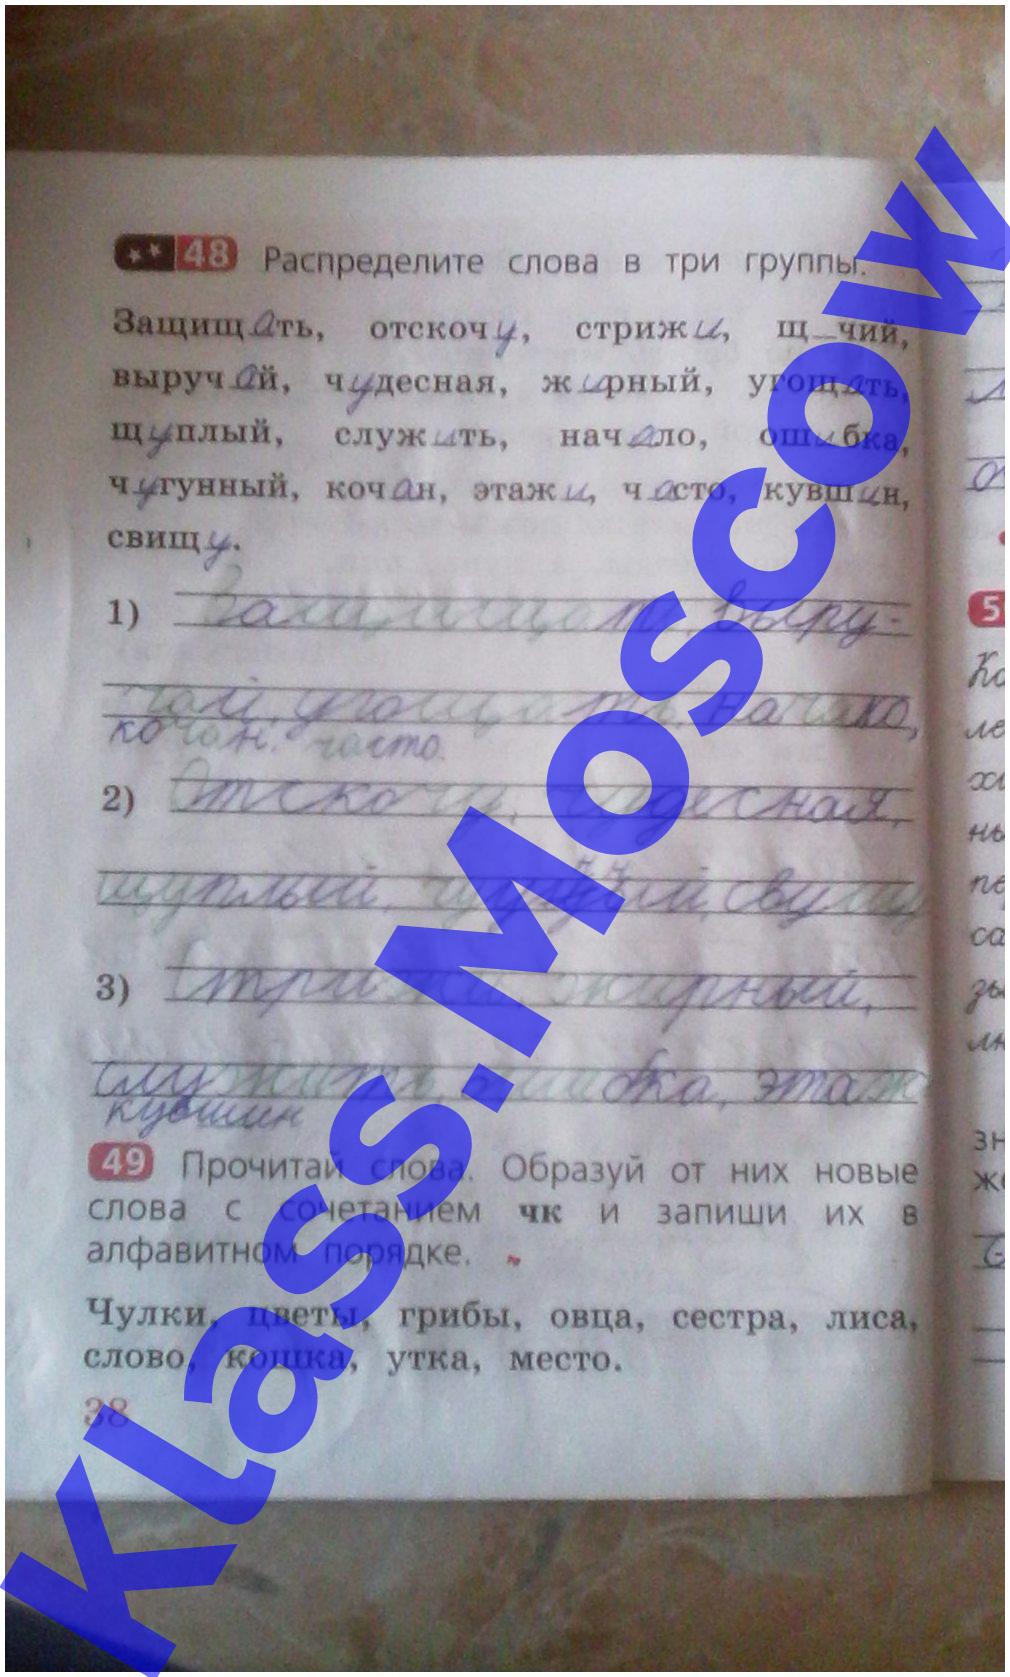 48 Распределите слова в три группы.
Защищать, отскочу, стрижи, щ_чий,
выручай, чудесная, жирный, угощать,
щуплый, служить, начало, ошибка,
чугунный, кочан, этажи, часто, кувшин,
свищу.
1) выру-
чай, угощать, начало,
кочан. часто.
2) Отскочу, чудесная,
щуплый,
3) Стрижи, жирный,
служить, ошибка, этаж
кувшин
49 Прочитай слова. Образуй от них новые
слова с сочетанием чк и запиши их в
алфавитном порядке.
Чулки, цветы, грибы, овца, сестра, лиса,
слово, кошка, утка, место.
38
Klass.Moscow